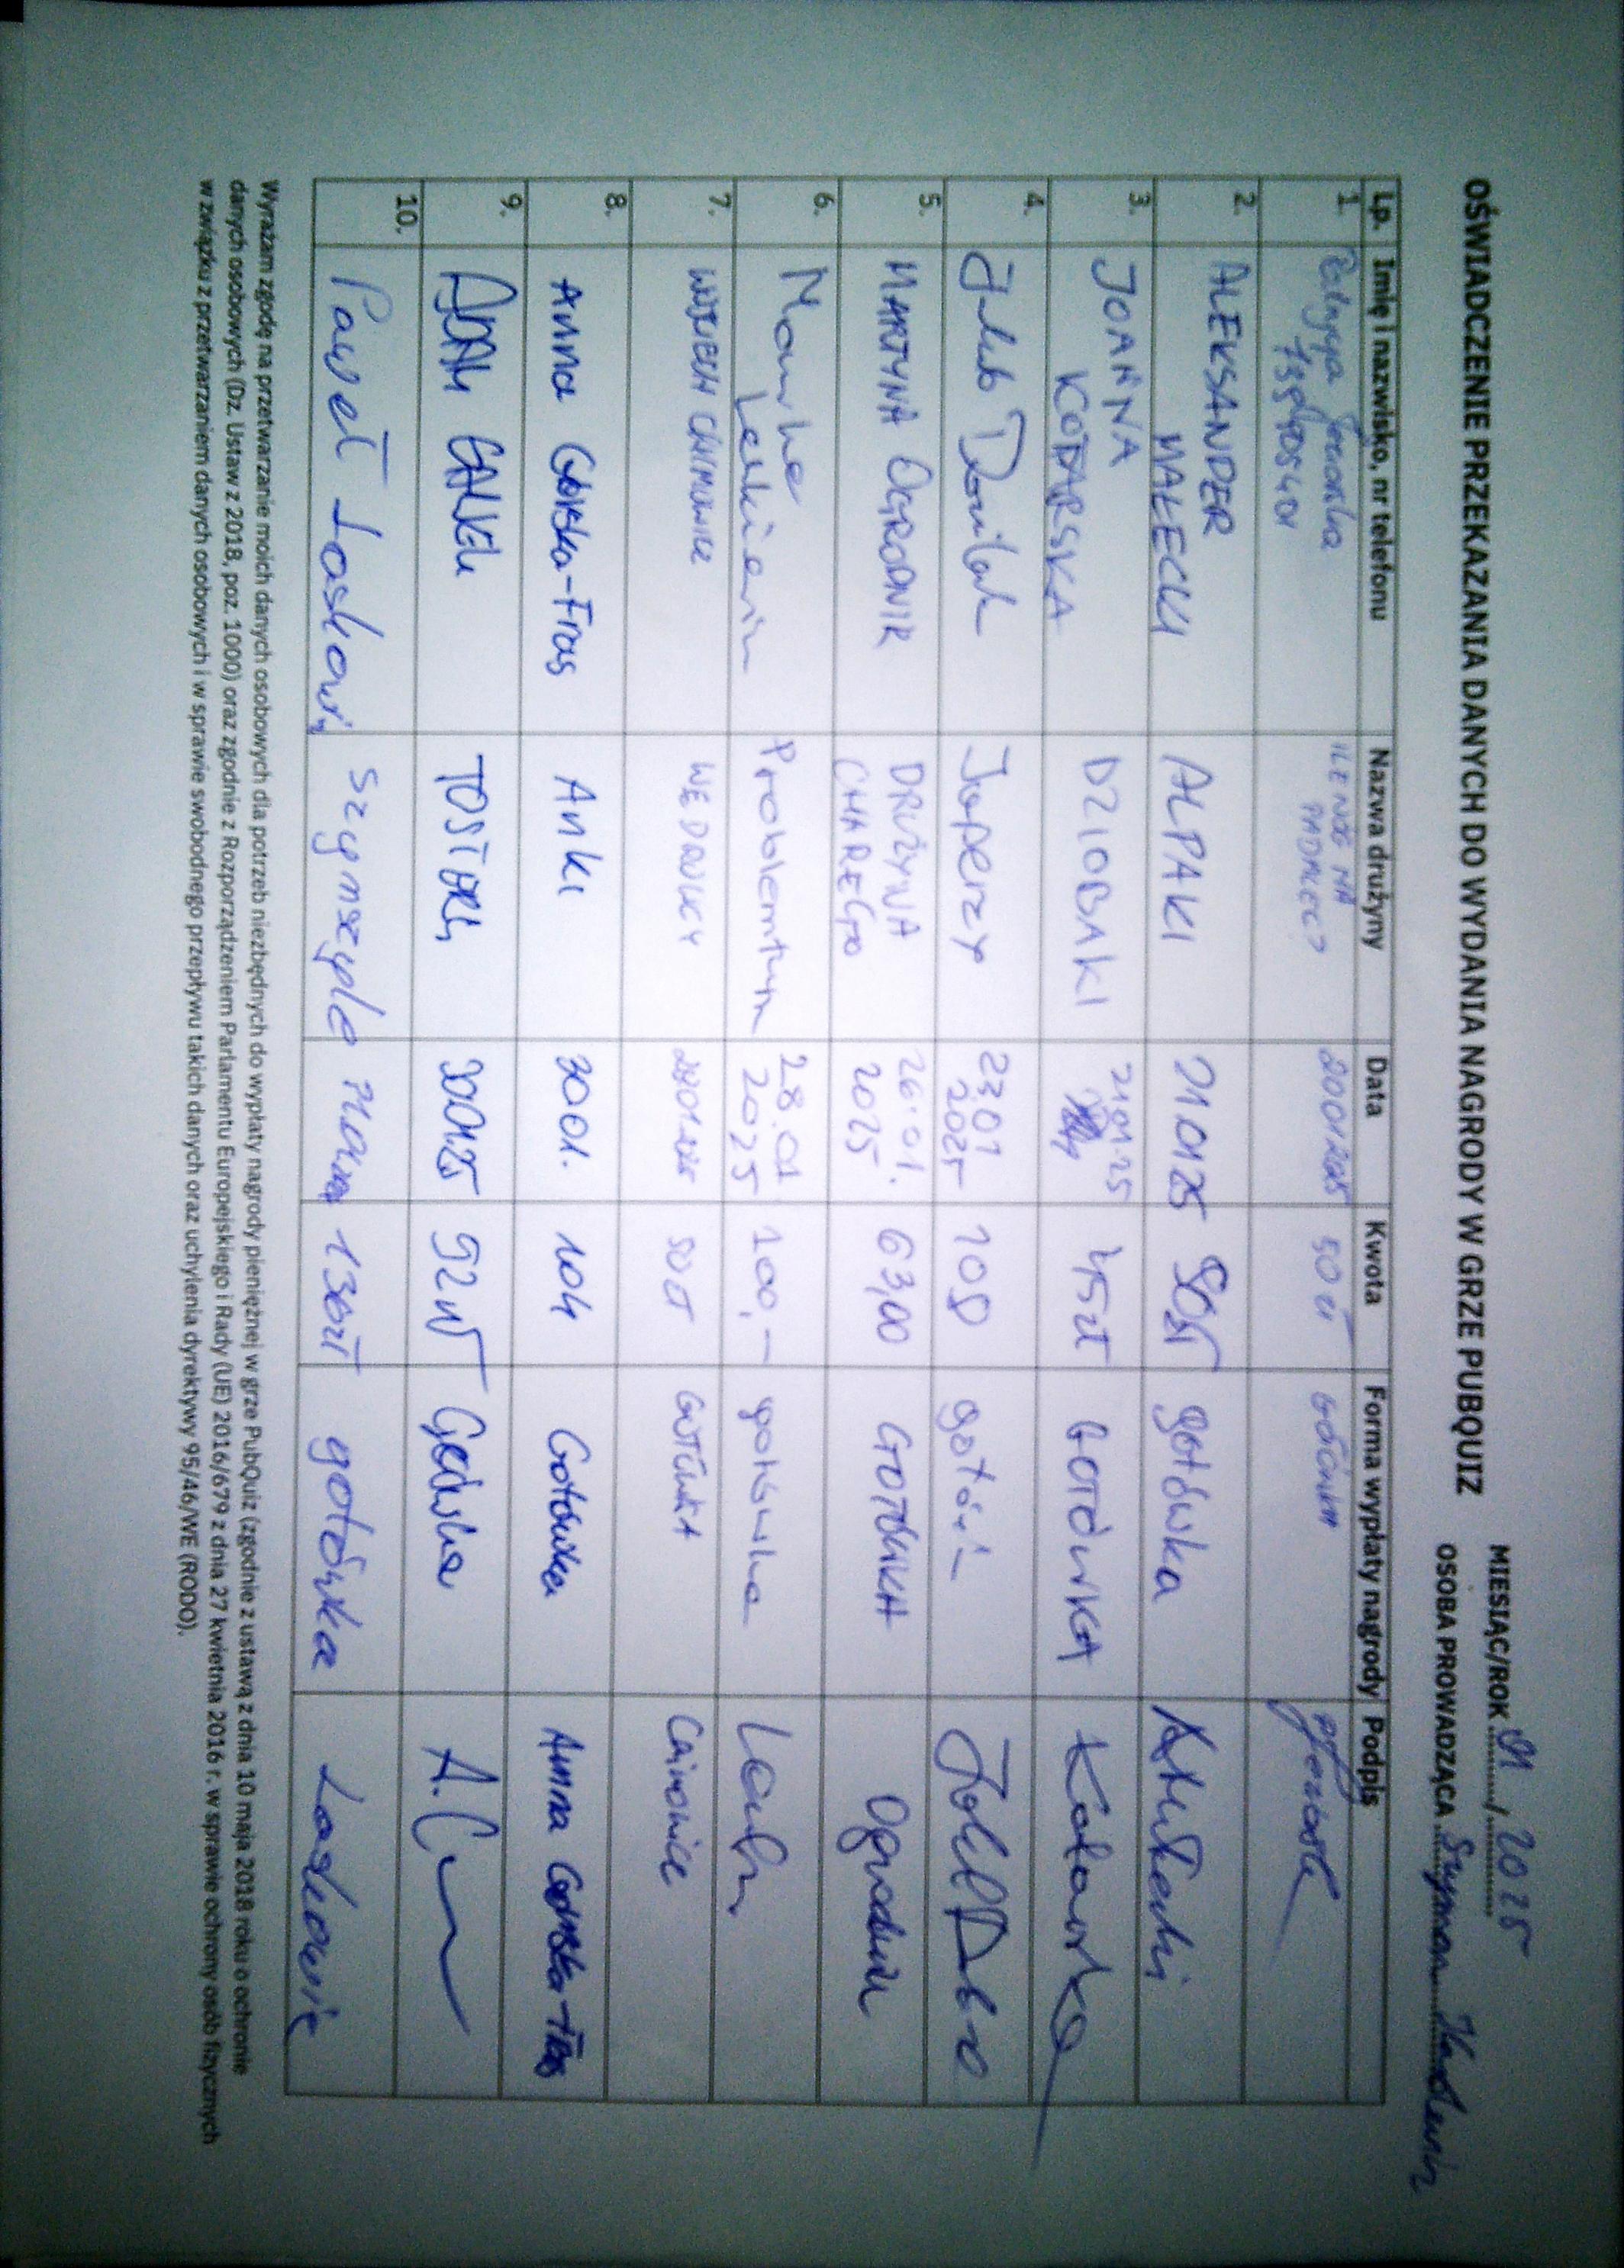 OŚWIADCZENIE PRZEKAZANIA DANYCH DO WYDANIA NAGRODY W GRZE PUBQUIZ
MIESIĄC/ROK 01 / 2025
OSOBA PROWADZĄCA Szymon
Lp. Imię i nazwisko, nr telefonu Nazwa drużyny Data Kwota Forma wypłaty nagrody Podpis
1. Patrycja ILE NÓG MA PADALEC? 20.01.2025 50 zł
2. ALEKSANDER MAŁECKI ALPAKI 21.01.25 gotówka
3. JOANNA KOTARSKA DZIOBAKI 21.01.25 45zł GOTÓWKA
4. Jakub Japerzy 23.01 2025 108
5. MARTYNA OGRODNIK DRUŻYNA CHAREGO 26.01. 2025 63,00 GOTÓWKA Ogrodnik
6. Problemtym 28.01 2025 100,- gotówka
7. WOJCIECH WĘDROWCY 50 zł GOTÓWKA
8. Anna Górska-Fras Anki 30.01. 104 Gotówka Anna Górska-Fras
9. ADAM TOSTERY 30.01.25 92 zł
10. Paweł Laskowski 130zł gotówka
Wyrażam zgodę na przetwarzanie moich danych osobowych dla potrzeb niezbędnych do wypłaty nagrody pieniężnej w grze PubQuiz (zgodnie z ustawą z dnia 10 maja 2018 roku o ochronie
danych osobowych (Dz. Ustaw z 2018, poz. 1000) oraz zgodnie z Rozporządzeniem Parlamentu Europejskiego i Rady (UE) 2016/679 z dnia 27 kwietnia 2016 r. w sprawie ochrony osób fizycznych
w związku z przetwarzaniem danych osobowych i w sprawie swobodnego przepływu takich danych oraz uchylenia dyrektywy 95/46/WE (RODO).